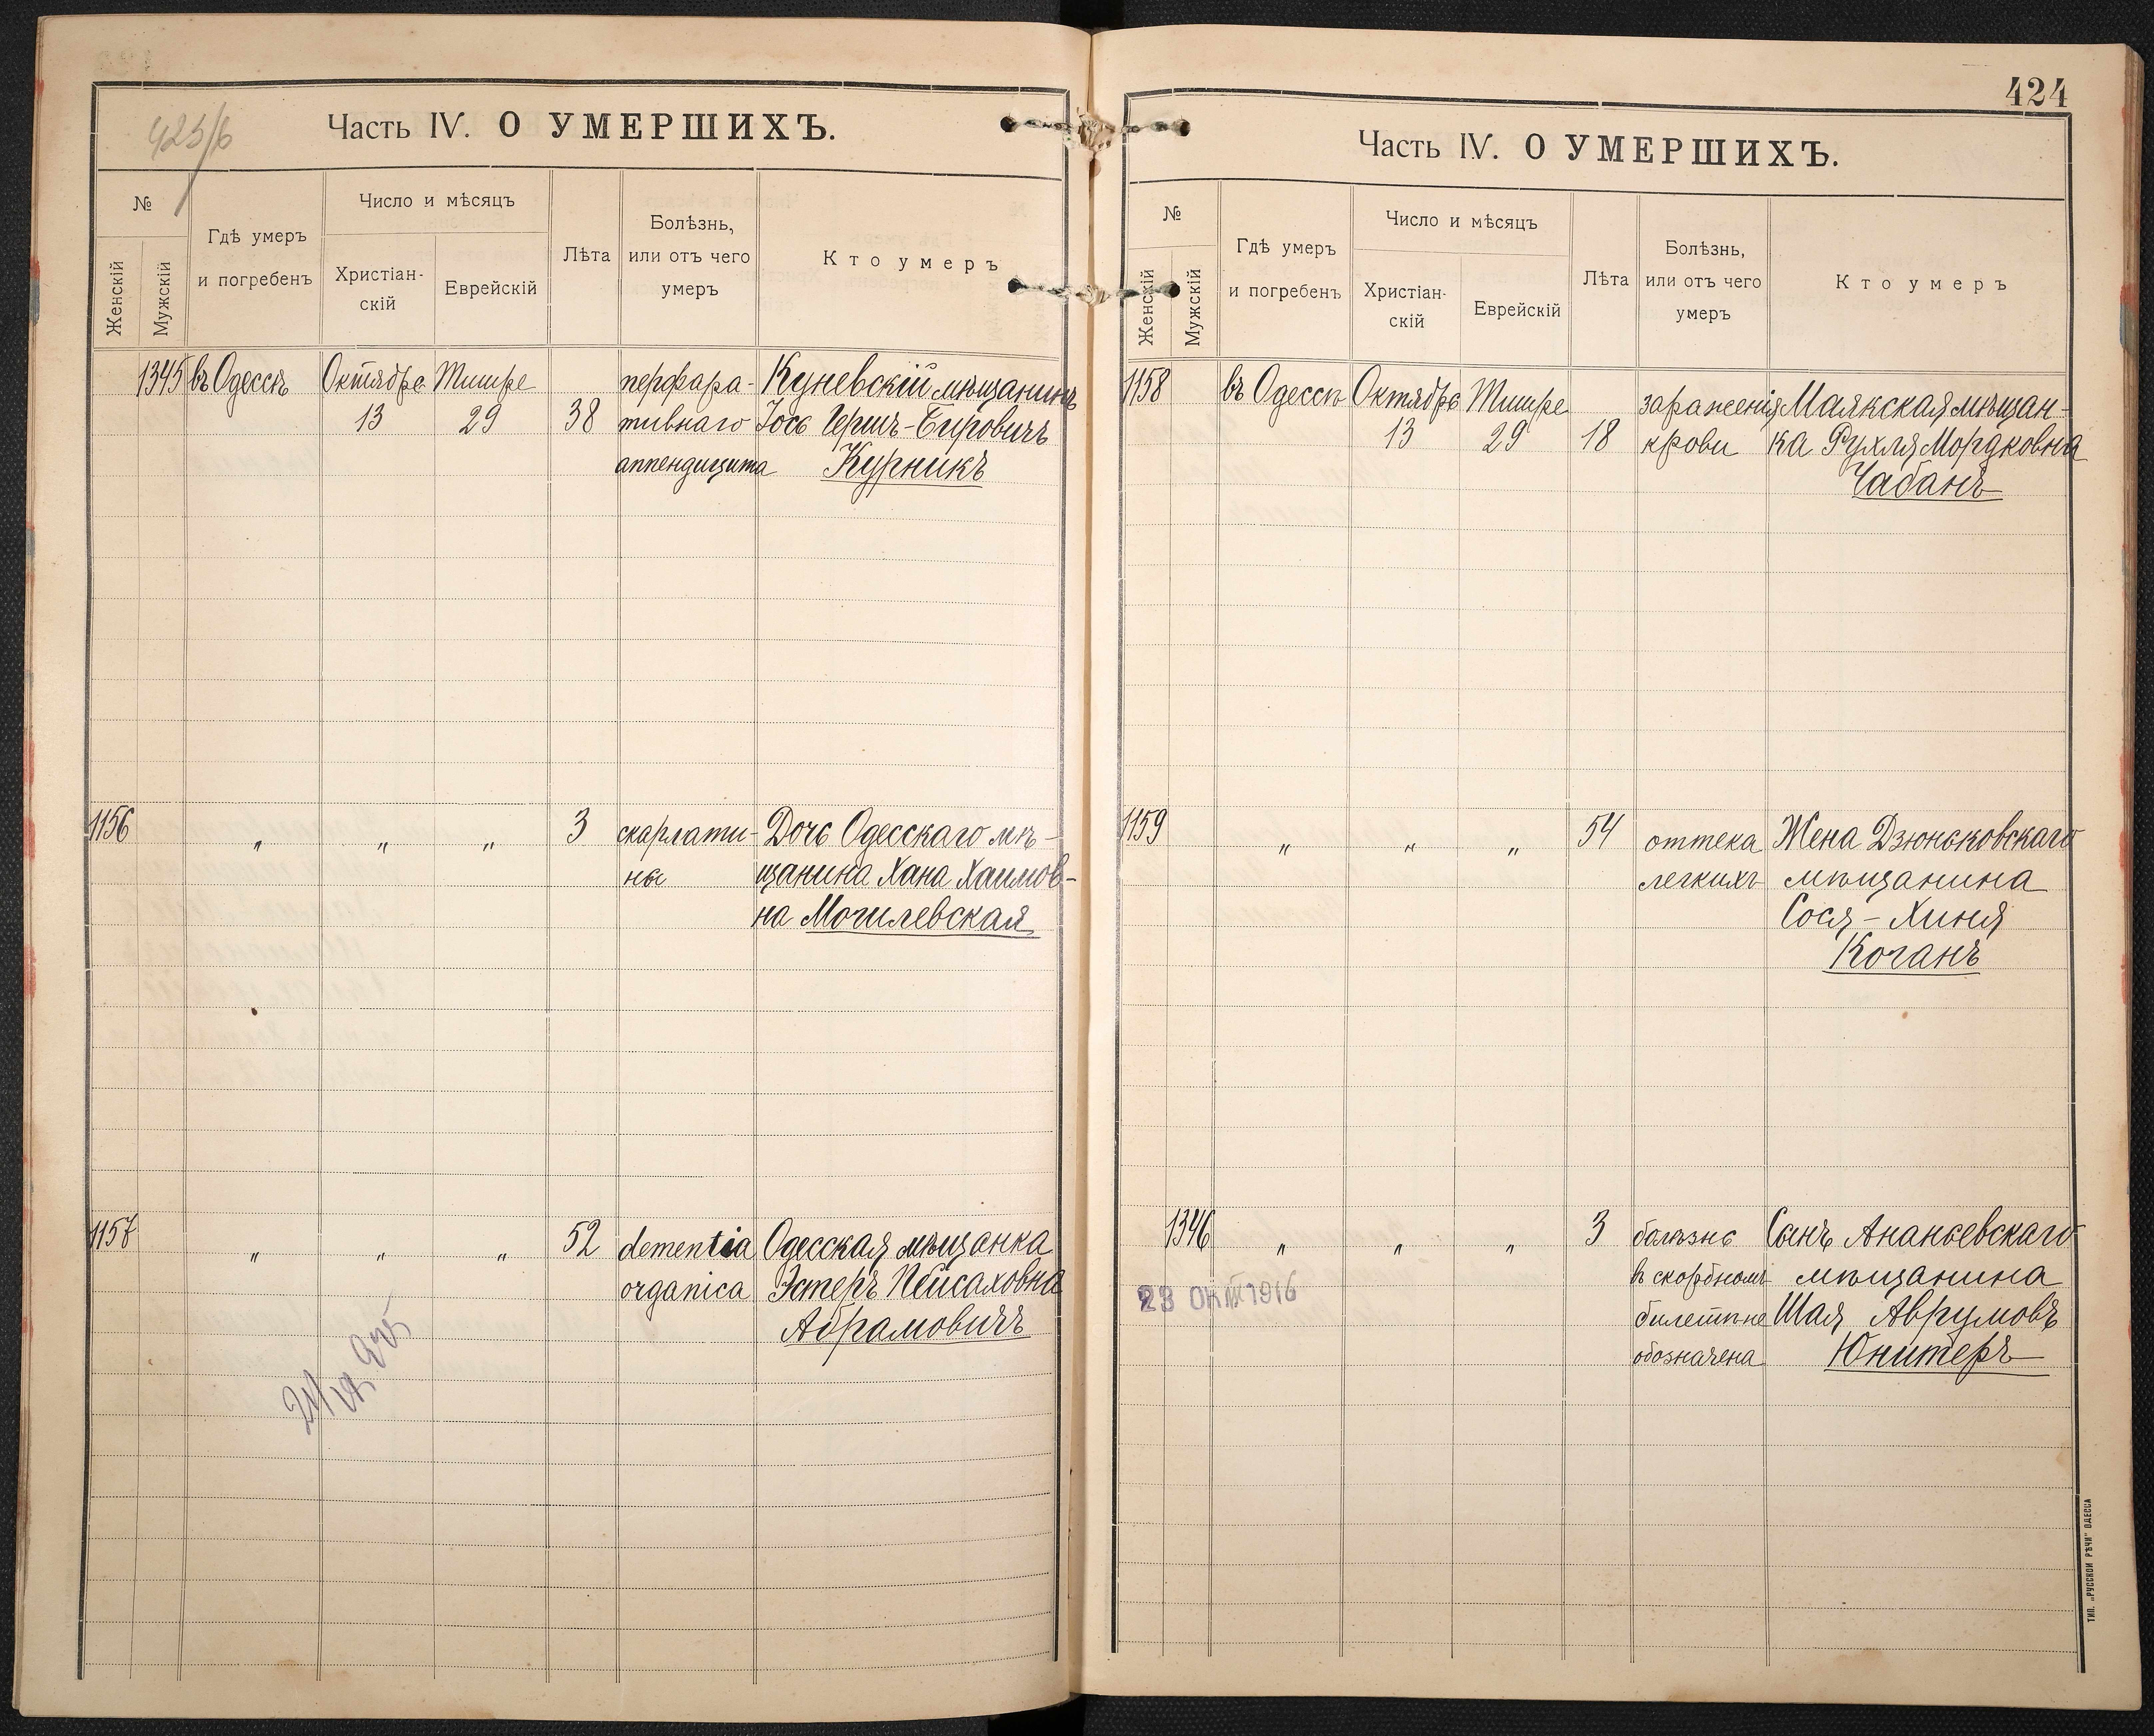 423/6
Часть IV. О УМЕРШИХЪ.
№
Женскій
Мужскій
Гдѣ умеръ
и погребенъ
Число и мѣсяцъ
Христіан-
скій
Еврейскій
Лѣта
Болѣзнь,
или отъ чего
умеръ
Кто умеръ
1345 въ Одессѣ Октября Тишре перфора- Куневскій мѣщанинъ
13 29 38 тивнаго Іось Гершъ-Беровичъ
аппендицита Курникъ
1156 " " " 3 скарлати- Дочь Одесскаго мѣ-
ны щанина Хана Хаимов-
на Могилевская
1157 " " " 52 dementia Одесская мѣщанка
organica Эстеръ Пейсаховна
Абрамовичъ
424
Часть IV. О УМЕРШИХЪ.
№
Женскій
Мужскій
Гдѣ умеръ
и погребенъ
Число и мѣсяцъ
Христіан-
скій
Еврейскій
Лѣта
Болѣзнь,
или отъ чего
умеръ
Кто умеръ
1158 въ Одессѣ Октября Тишре зараженія Маякская мѣщан-
13 29 18 крови ка Рухля Мордковна
Чабанъ
1159 " " " 54 оттека Жена Дзюньковскаго
легкихъ мѣщанина
Сося-Хиня
Коганъ
1346 " " " 3 болѣзнь Сынъ Ананьевскаго
въ скорбномъ мѣщанина
билетѣ не Шая Аврумовъ
обозначена Юнитеръ
23 ОКТ 1916
ТИП. „РУССКОЙ РѢЧИ" ОДЕССА